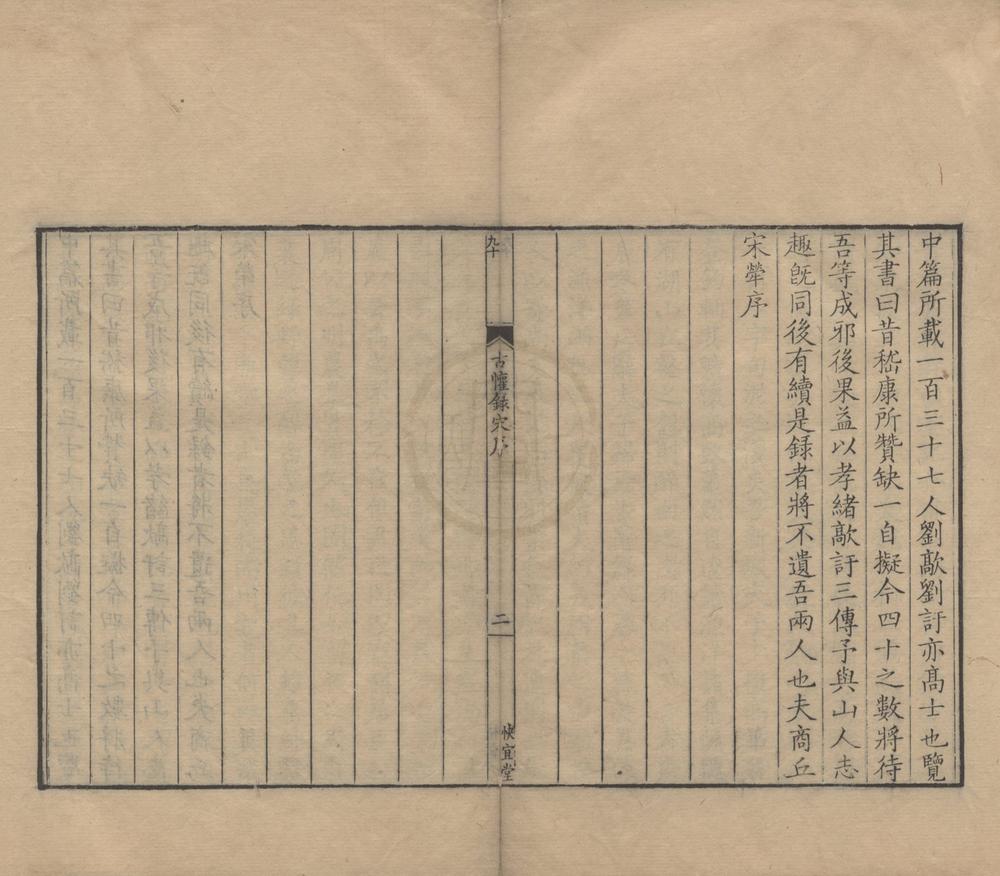 中篇所載一百三十七人劉歊劉訏亦髙士也覽
其書曰昔嵇康所贊缺一自擬今四十之數將待
吾等成邪後果益以孝緒歊訏三傳予與山人志
趣旣同後有續是録者將不遺吾兩人也夫商丘
宋犖序
九十
古懽錄宋序
二
快宜堂